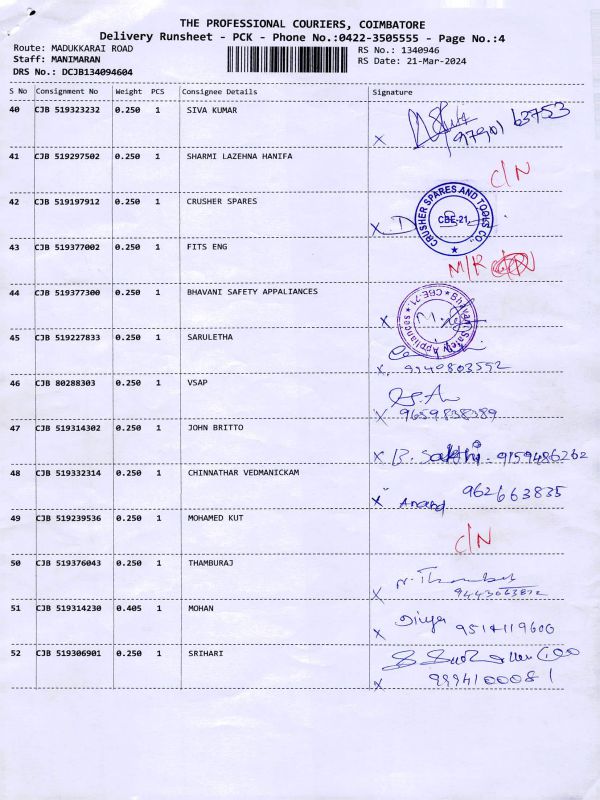 THE PROFESSIONAL COURIERS, COIMBATORE
Delivery Runsheet - PCK - Phone No.:0422-3505555 - Page No.:4
Route: MADUKKARAI ROAD RS No.: 1340946
Staff: MANIMARAN RS Date: 21-Mar-2024
DRS No.: DCJB134094604
S No Consignment No Weight PCS Consignee Details Signature
40 CJB 519323232 0.250 1 SIVA KUMAR
X
41 CJB 519297502 0.250 1 SHARMI LAZEHNA HANIFA
C/N
42 CJB 519197912 0.250 1 CRUSHER SPARES
X CRUSHER SPARES AND TOOLS CO. CBE-21 ★
43 CJB 519377002 0.250 1 FITS ENG
M/R
44 CJB 519377300 0.250 1 BHAVANI SAFETY APPALIANCES
X Bhavani Safety Appliances CBE-21
45 CJB 519227833 0.250 1 SARULETHA
X
46 CJB 80288303 0.250 1 VSAP
X 9659838389
47 CJB 519314302 0.250 1 JOHN BRITTO
X B. Sakthi. 9159486262
48 CJB 519332314 0.250 1 CHINNATHAR VEDMANICKAM
X Anand 962663835
49 CJB 519239536 0.250 1 MOHAMED KUT
C/N
50 CJB 519376043 0.250 1 THAMBURAJ
X
51 CJB 519314230 0.405 1 MOHAN
X Divya 9514119600
52 CJB 519306901 0.250 1 SRIHARI
X 9994100081